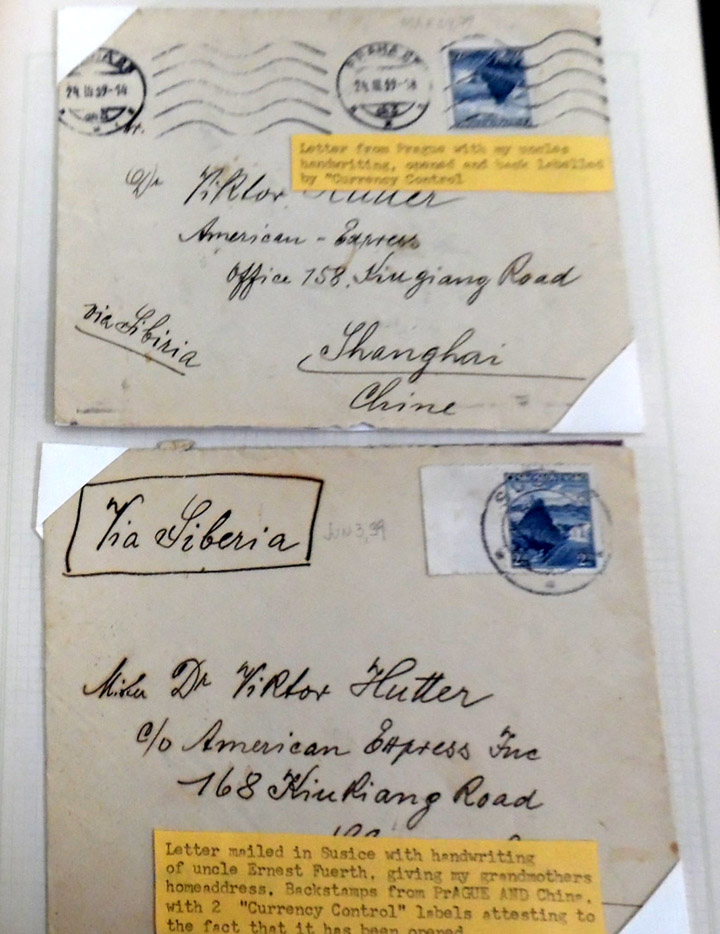 PRAHA
24.III.39-14
PRAHA
24.III.39-14
Letter from Prague with my uncles
handwriting, opened and back labelled
by "Currency Control
Dr Viktor Hutter
American - Express
Office 158. Kiugiang Road
via Sibiria
Shanghai
Chine
Via Siberia
JUN 3, 39
SUŠICE
2
2
Mister Dr Viktor Hutter
c/o American Express Inc
168 Kiukiang Road
Letter mailed in Susice with handwriting
of uncle Ernest Fuerth, giving my grandmothers
homeaddress. Backstamps from PrAGUE AND China.
with 2 "Currency Control" labels attesting to
the fact that it has been opened